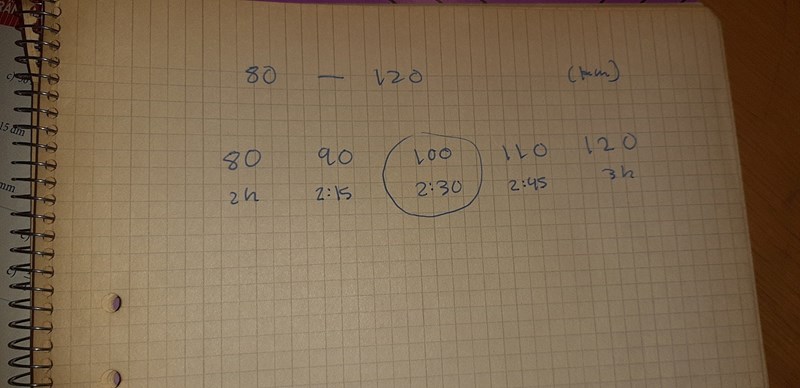 80 — 120 (km)
80 90 100 110 120
2h 2:15 2:30 2:45 3h
15 dm
mm